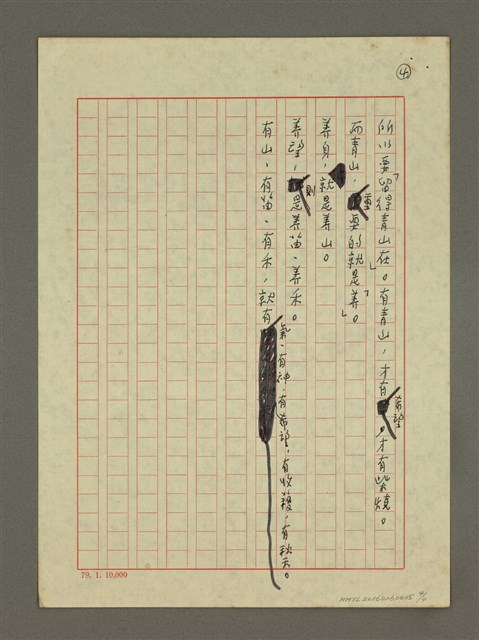 ④
所以要「留得青山在」。有青山，才有希望，才有柴燒。
而青山，重要的就是「養」。
養身，就是養山。
養望，則是養笛、養禾。
有山，有笛、有禾，就有氣、有神、有希望，有收穫，有秋天。
79. 1. 10,000